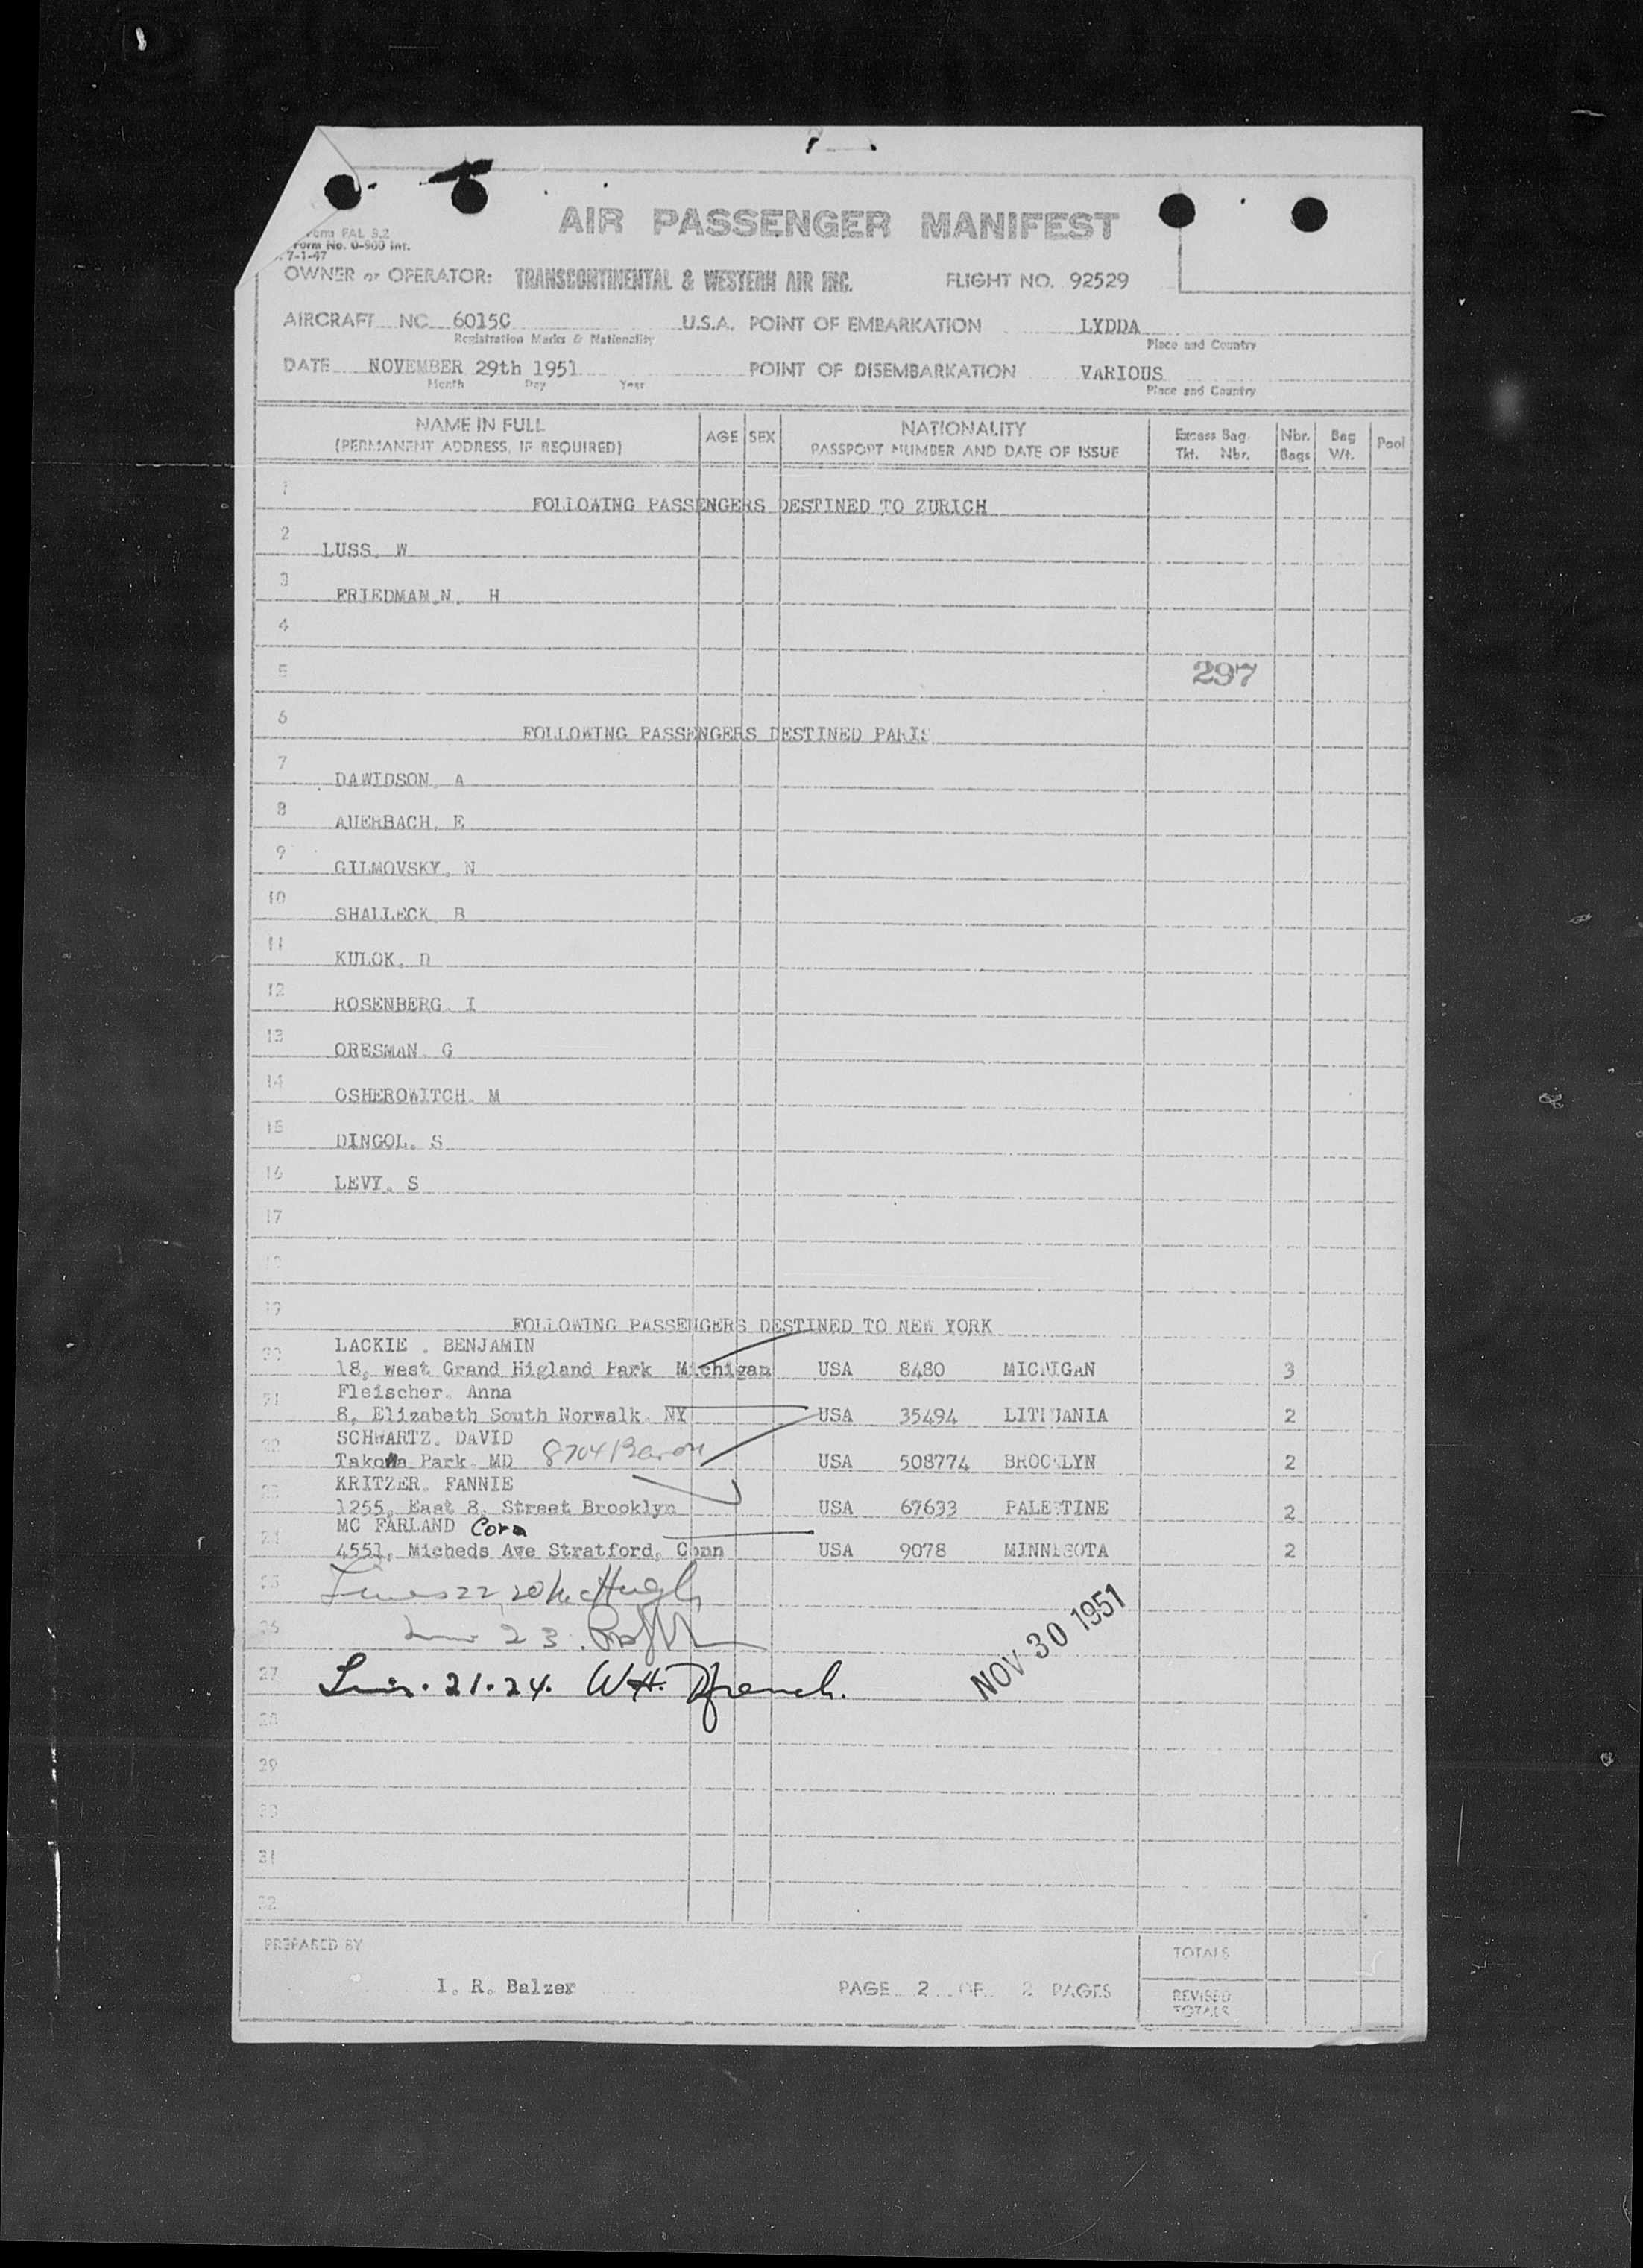 AIR PASSENGER MANIFEST
Form FAL 3.2
Form No. 0-900 Int.
7-1-47
OWNER or OPERATOR: TRANSCONTINENTAL & WESTERN AIR INC. FLIGHT NO. 92529
AIRCRAFT NC 6015C U.S.A. POINT OF EMBARKATION LYDDA
Registration Marks & Nationality Place and Country
DATE NOVEMBER 29th 1951 POINT OF DISEMBARKATION VARIOUS
Month Day Year Place and Country
NAME IN FULL (PERMANENT ADDRESS, IF REQUIRED) AGE SEX NATIONALITY PASSPORT NUMBER AND DATE OF ISSUE Excess Bag. Tkt. Nbr. Nbr. Bags Bag Wt. Pool
1 FOLLOWING PASSENGERS DESTINED TO ZURICH
2 LUSS, W
3 FRIEDMAN,N, H
4
5 297
6 FOLLOWING PASSENGERS DESTINED PARIS
7 DAWIDSON, A
8 AUERBACH, E
9 GILMOVSKY, N
10 SHALLECK, B
11 KULOK, D
12 ROSENBERG, I
13 ORESMAN, G
14 OSHEROWITCH, M
15 DINGOL, S
16 LEVY, S
17
18
19 FOLLOWING PASSENGERS DESTINED TO NEW YORK
LACKIE . BENJAMIN
20 18, west Grand Higland Park Michigan USA 8480 MICHIGAN 3
Fleischer. Anna
21 8, Elizabeth South Norwalk. NY USA 35494 LITHUANIA 2
SCHWARTZ. DAVID
22 Takoma Park MD 8704 USA 508774 BROOKLYN 2
KRITZER. FANNIE
23 1255, East 8, Street Brooklyn USA 67633 PALESTINE 2
MC FARLAND Cora
24 4551, Micheds Ave Stratford, Conn USA 9078 MINNESOTA 2
25 Lines 22, 20 McHugh
26 Line 23.
27 Lines. 21-24. W.H. French.
NOV 30 1951
28
29
30
31
32
PREPARED BY TOTALS
I. R. Balzer PAGE 2 OF 2 PAGES REVISED TOTALS